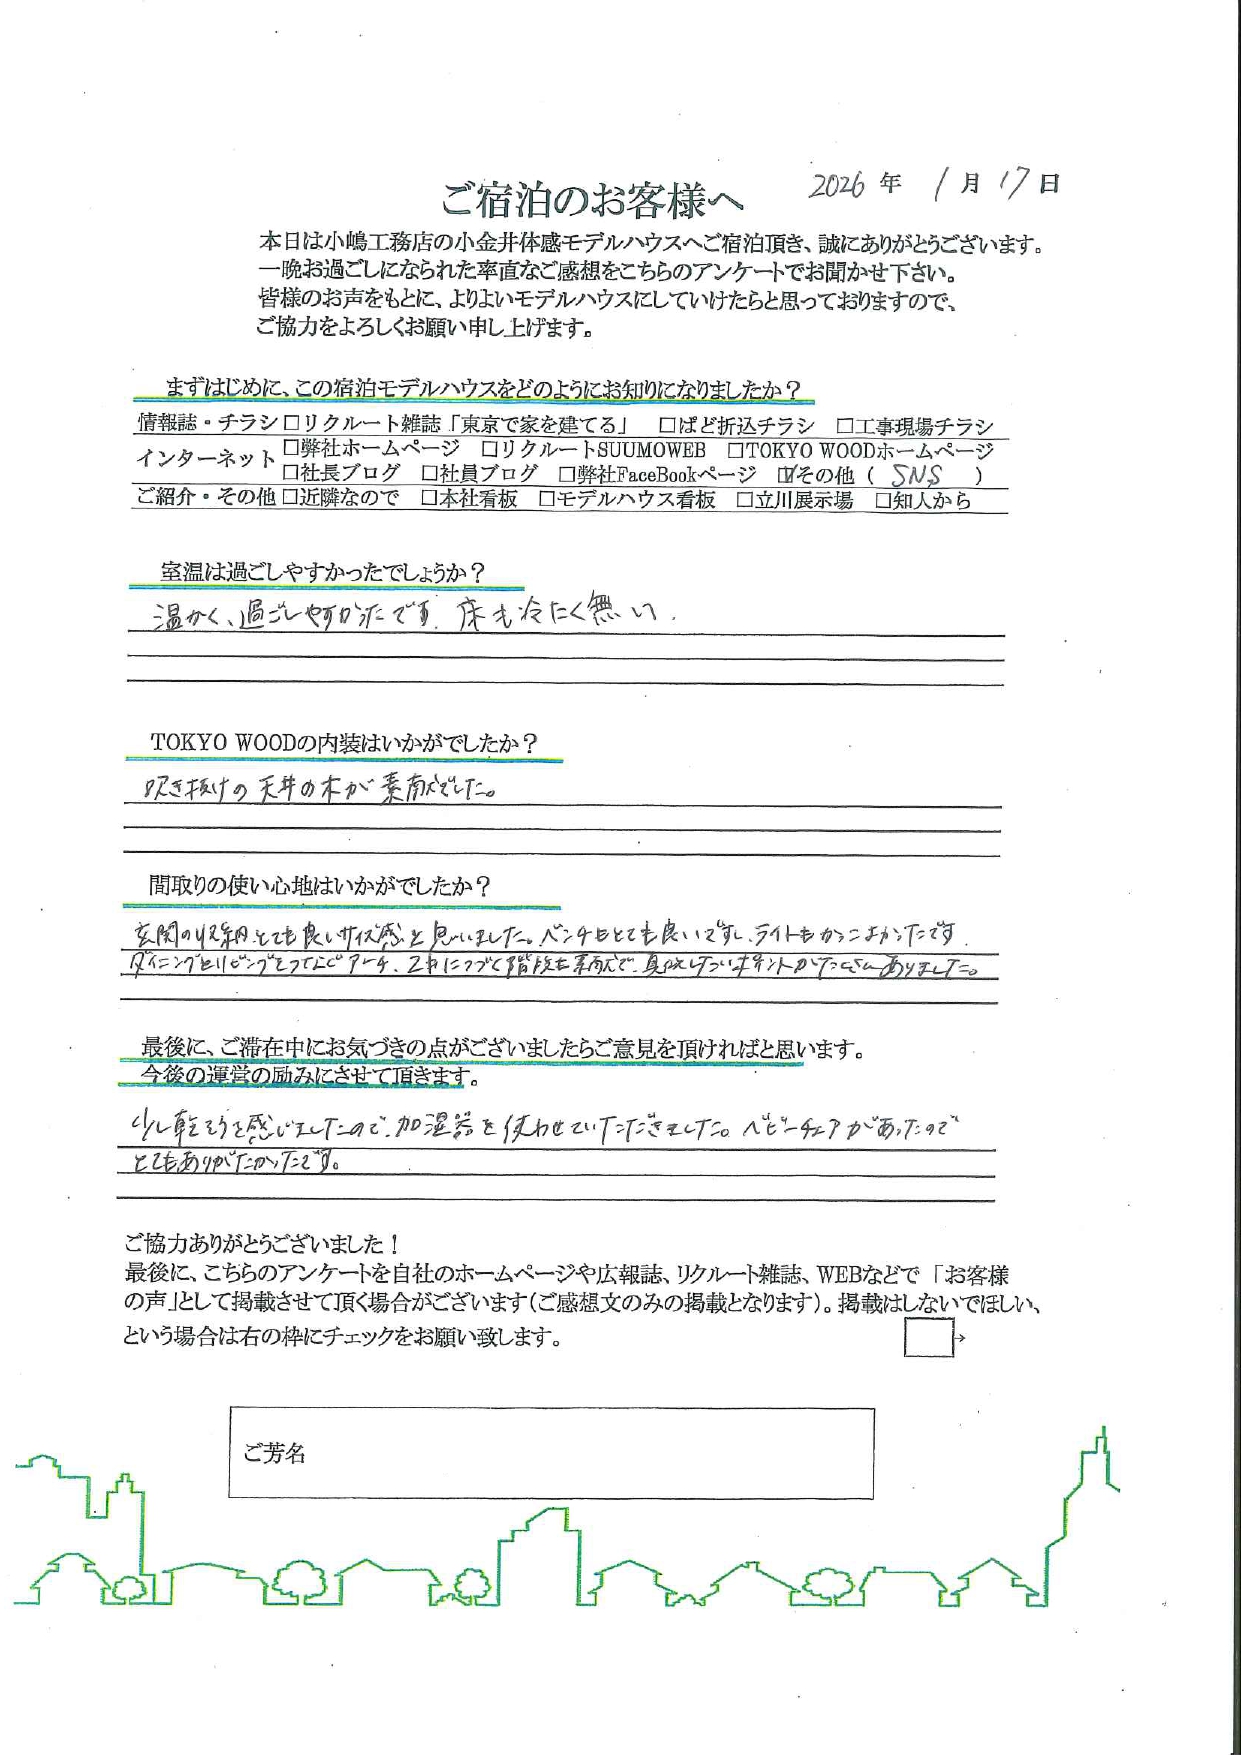 2026 年 1 月 17 日
ご宿泊のお客様へ
本日は小嶋工務店の小金井体感モデルハウスへご宿泊頂き、誠にありがとうございます。
一晩お過ごしになられた率直なご感想をこちらのアンケートでお聞かせ下さい。
皆様のお声をもとに、よりよいモデルハウスにしていけたらと思っておりますので、
ご協力をよろしくお願い申し上げます。
まずはじめに、この宿泊モデルハウスをどのようにお知りになりましたか？
情報誌・チラシ □リクルート雑誌「東京で家を建てる」 □ぱど折込チラシ □工事現場チラシ
インターネット □弊社ホームページ □リクルートSUUMOWEB □TOKYO WOODホームページ
□社長ブログ □社員ブログ □弊社FaceBookページ ☑その他 （ SNS ）
ご紹介・その他 □近隣なので □本社看板 □モデルハウス看板 □立川展示場 □知人から
室温は過ごしやすかったでしょうか？
温かく、過ごしやすかったです。床も冷たく無い。
TOKYO WOODの内装はいかがでしたか？
吹き抜けの天井の木が素敵でした。
間取りの使い心地はいかがでしたか？
玄関の収納とても良いサイズ感と思いました。ベンチもとても良いですし、ライトもかっこよかったです
ダイニングとリビングをつなぐアーチ、2Fにつづく階段も素敵で、真似したいポイントがたくさんありました。
最後に、ご滞在中にお気づきの点がございましたらご意見を頂ければと思います。
今後の運営の励みにさせて頂きます。
少し乾そうを感じましたので、加湿器を使わせていただきました。ベビーチェアがあったので
とてもありがたかったです。
ご協力ありがとうございました！
最後に、こちらのアンケートを自社のホームページや広報誌、リクルート雑誌、WEBなどで「お客様
の声」として掲載させて頂く場合がございます（ご感想文のみの掲載となります）。掲載はしないでほしい、
という場合は右の枠にチェックをお願い致します。 □→
ご芳名